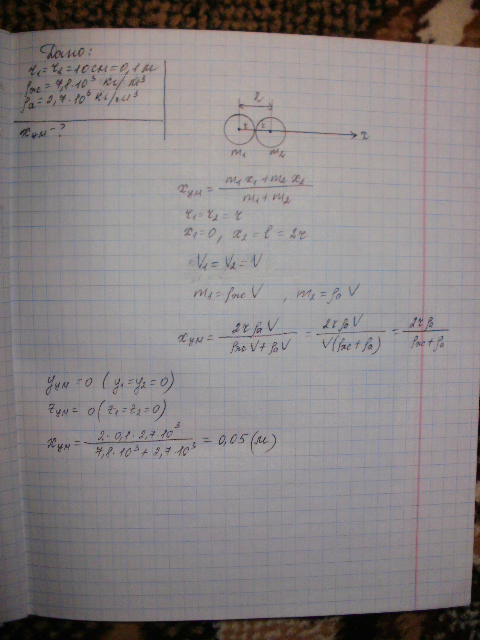 Дано:
r₁=r₂=10см=0,1м
ρж=7,8·10³ кг/м³
ρа=2,7·10³ кг/м³
xцм-?
l
r r
m₁ m₂
xцм = (m₁x₁+m₂x₂)/(m₁+m₂)
r₁=r₂=r
x₁=0, x₂=l=2r
V₁=V₂=V
m₁=ρжV, m₂=ρаV
xцм = 2rρаV/(ρжV+ρаV) = 2rρаV/(V(ρж+ρа)) = 2rρа/(ρж+ρа)
yцм=0 (y₁=y₂=0)
zцм=0 (z₁=z₂=0)
xцм = (2·0,1·2,7·10³)/(7,8·10³+2,7·10³) = 0,05(м)